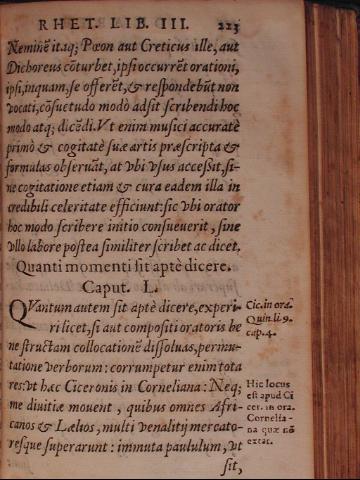 RHET. LIB. III. 223
Neminē itaq; Pæon aut Creticus ille, aut
Dichoreus cōturbet, ipsi occurrēt orationi,
ipsi, inquam, se offerēt, & respondebūt non
vocati, cōsuetudo modò adsit scribendi hoc
modo atq; dicēdi. Vt enim musici accuratè
primò & cogitatè suæ artis præscripta &
formulas obseruāt, at vbi vsus accessit, si-
ne cogitatione etiam & cura eadem illa in
credibili celeritate efficiunt: sic vbi orator
hoc modo scribere initio consueuerit, sine
vllo labore postea similiter scribet ac dicet.
Quanti momenti sit aptè dicere.
Caput. L.
QVantum autem sit aptè dicere, experi-
ri licet, si aut compositi oratoris be
ne structam collocationē dissoluas, permu-
tatione verborum: corrumpetur enim tota
res: vt hæc Ciceronis in Corneliana: Neq;
me diuitiæ mouent, quibus omnes Afri-
canos & Lælios, multi venalitij mercato-
resque superarunt: immuta paululum, vt
sit,
Cic. in ora.
Quin. li. 9.
cap. 4.
Hic locus
est apud Ci
cer. in ora.
Cornelia-
na quæ nō
extat.